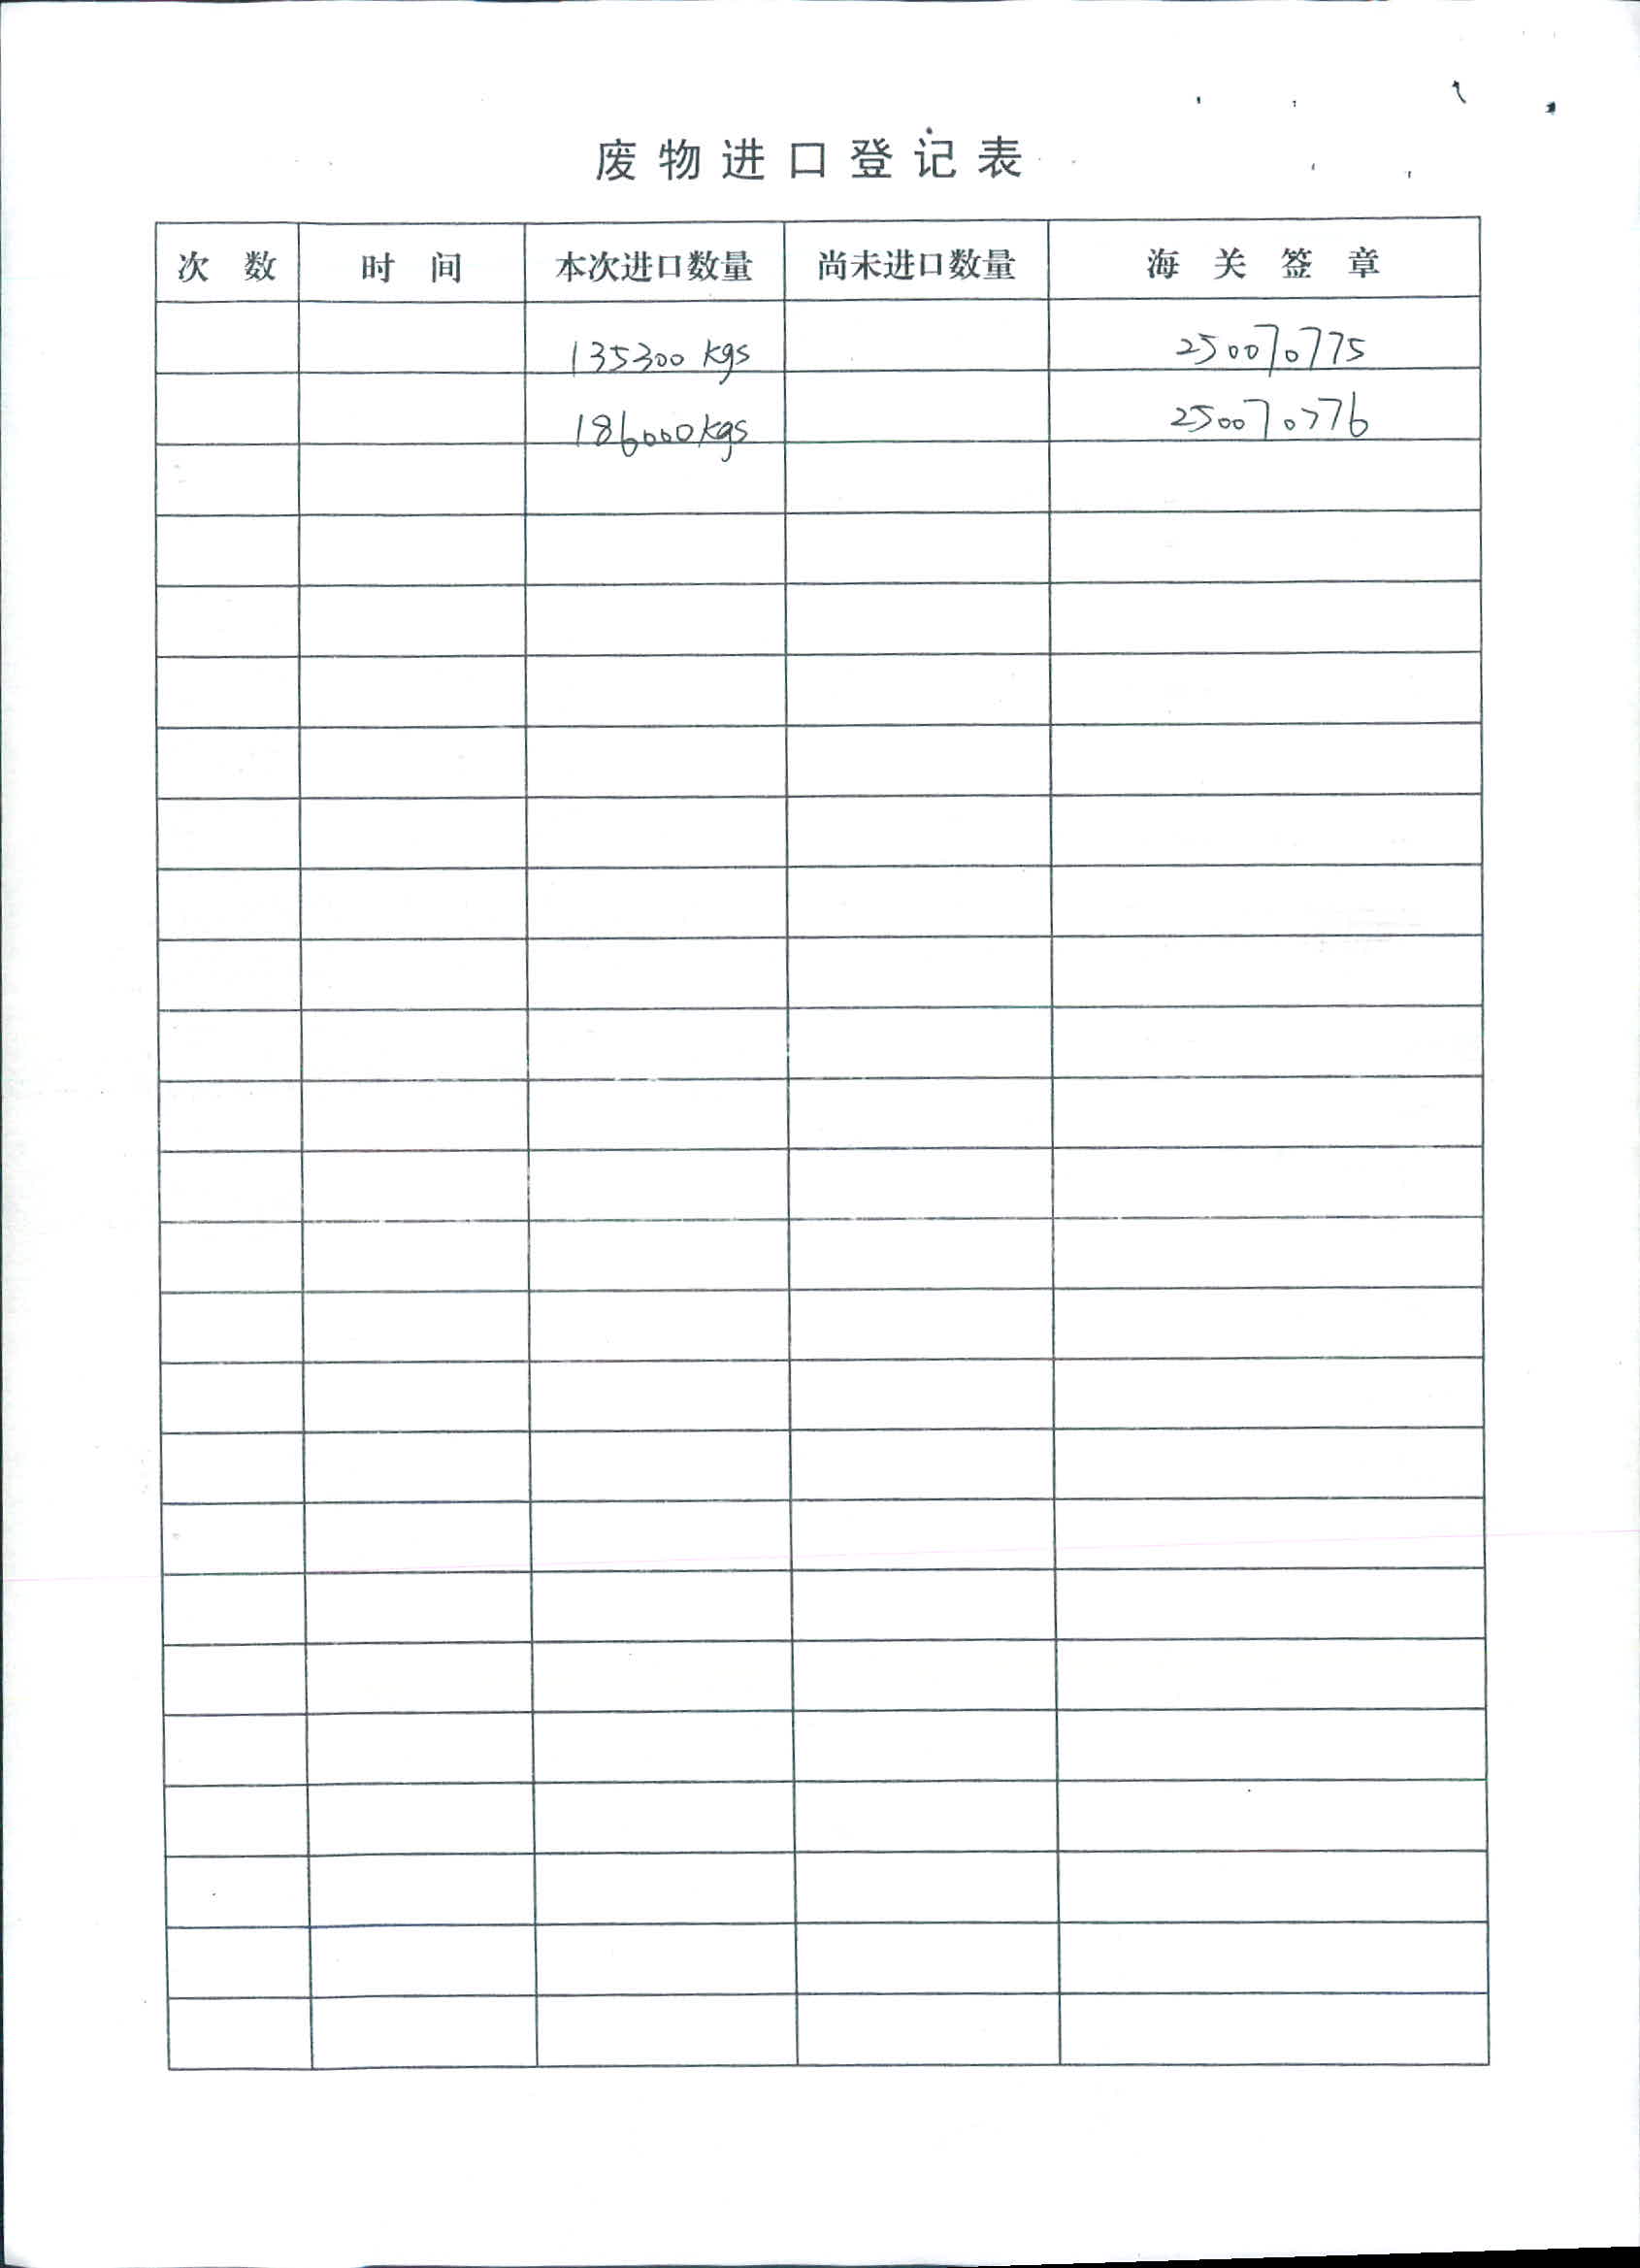 废物进口登记表
次数 时间 本次进口数量 尚未进口数量 海关签章
135300 kgs 250070775
186000 kgs 250070776